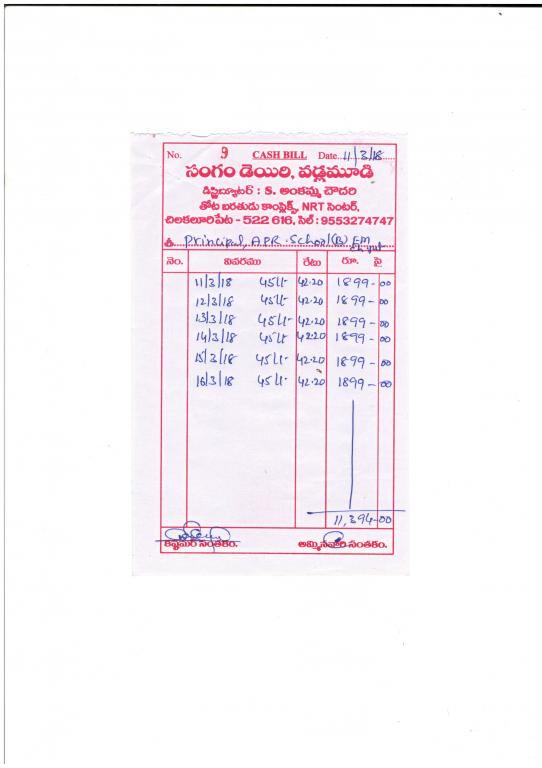 No. 9 CASH BILL Date...11/3/18......
సంగం డెయిరి, వడ్లమూడి
డిస్ట్రిబ్యూటర్ : S. అంకమ్మ చౌదరి
తోట బరతుడు కాంప్లెక్స్, NRT సెంటర్,
చిలకలూరిపేట - 522 616, సెల్ : 9553274747
శ్రీ. Principal, APR. School (B) EM
నెం. వివరము రేటు రూ. పై
11/3/18 45 Lt 42.20 1899-00
12/3/18 45 Lt 42.20 1899-00
13/3/18 45 Lt 42.20 1899-00
14/3/18 45 Lt 42.20 1899-00
15/3/18 45 Lt 42.20 1899-00
16/3/18 45 Lt 42.20 1899-00
11,394-00
కస్టమర్ సంతకం. అమ్మినవారి సంతకం.